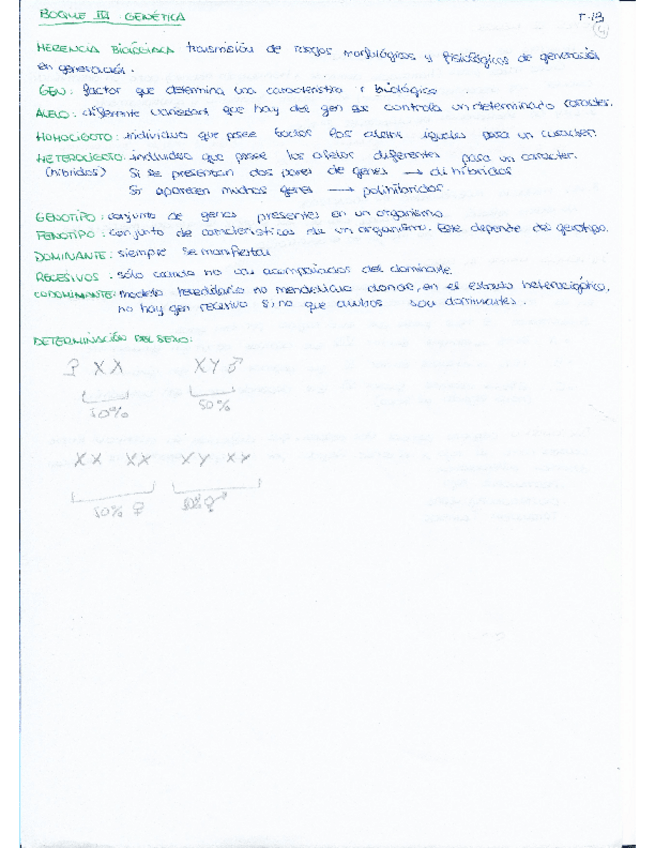 BOQUE III GENÉTICA
T-13
HERENCIA BIOLÓGICA transmisión de rasgos morfológicos y fisiológicos de generación
en generación.
GEN: factor que determina una característica biológico
ALELO: diferente variedad que hay del gen que controla un determinado caracter.
HOMOCIGOTO: individuo que posee los alelos iguales para un caracter.
HETEROCIGOTO: individuo que posee los alelos diferentes para un caracter.
(híbridos) Si se presentan dos pares de genes → dihíbridos
Si aparecen muchos genes → polihíbridos
GENOTIPO: conjunto de genes presentes en un organismo
FENOTIPO: conjunto de características de un organismo. Este depende del genotipo.
DOMINANTE: siempre se manifiesta
RECESIVOS: sólo cuando no acompañados del dominante
CODOMINANTE: modelo hereditario no mendeliano donde, en el estado heterocigótico,
no hay gen recesivo si no que ambos son dominantes.
DETERMINACIÓN DEL SEXO:
♀ XX XY ♂
50% 50%
XX XX XY XY
50% ♀ 50% ♂